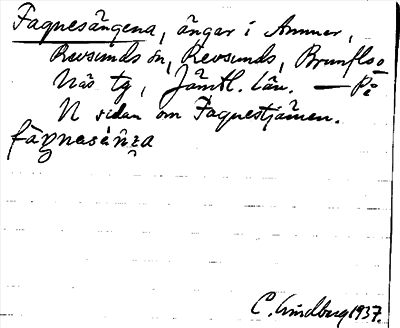 Faquesängena, ängar i Ammer,
Revsunds sn, Revsunds, Brunflo o
Näs tg, Jämtl. län. — På
N sidan om Faquestjärnen.
C. Lindberg 1937.